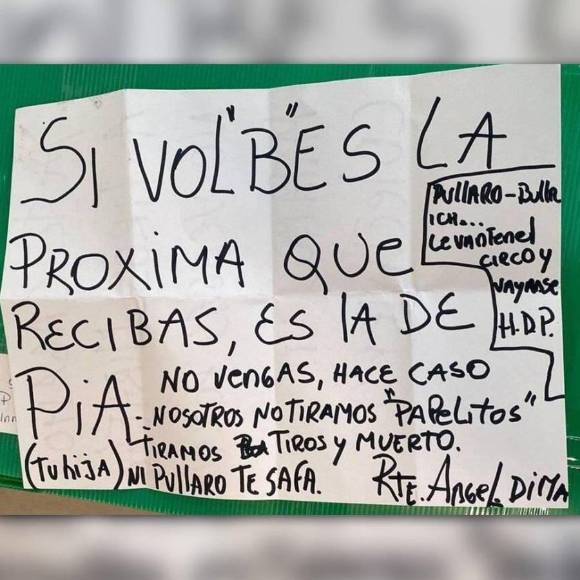 SI VOL"B"ES LA
PROXIMA QUE
RECIBAS, ES LA DE
PIA.-
(Tu hija)
NO VENGAS, HACE CASO
NOSOTROS NO TIRAMOS "PAPELITOS"
TIRAMOS TIROS Y MUERTO.
NI PULLARO TE SAFA.
RTE. ANGEL DIMA
PULLARO-Bullr
ICH...
LeVANTENel
CIRCO Y
VAYANSE
H.D.P.